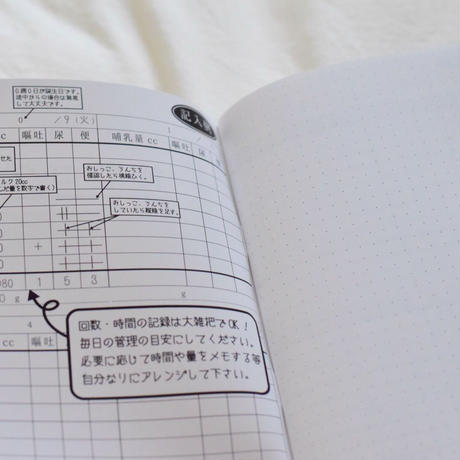 0週0日が誕生日です。
途中からの場合は無視
して大丈夫です。
記入例
0 /9(火) 1 /
cc 嘔吐 尿 便 哺乳量 cc 嘔吐 尿
せた
おしっこ、うんちを
確認したら横線ひく。
ルク20cc
した量を数字で書く)
おしっこ、うんちを
していたら縦線を足す。
+
980 1 5 3
0 g g
4
cc 嘔吐
回数・時間の記録は大雑把でOK!
毎日の管理の目安にしてください。
必要に応じて時間や量をメモする等
自分なりにアレンジして下さい。